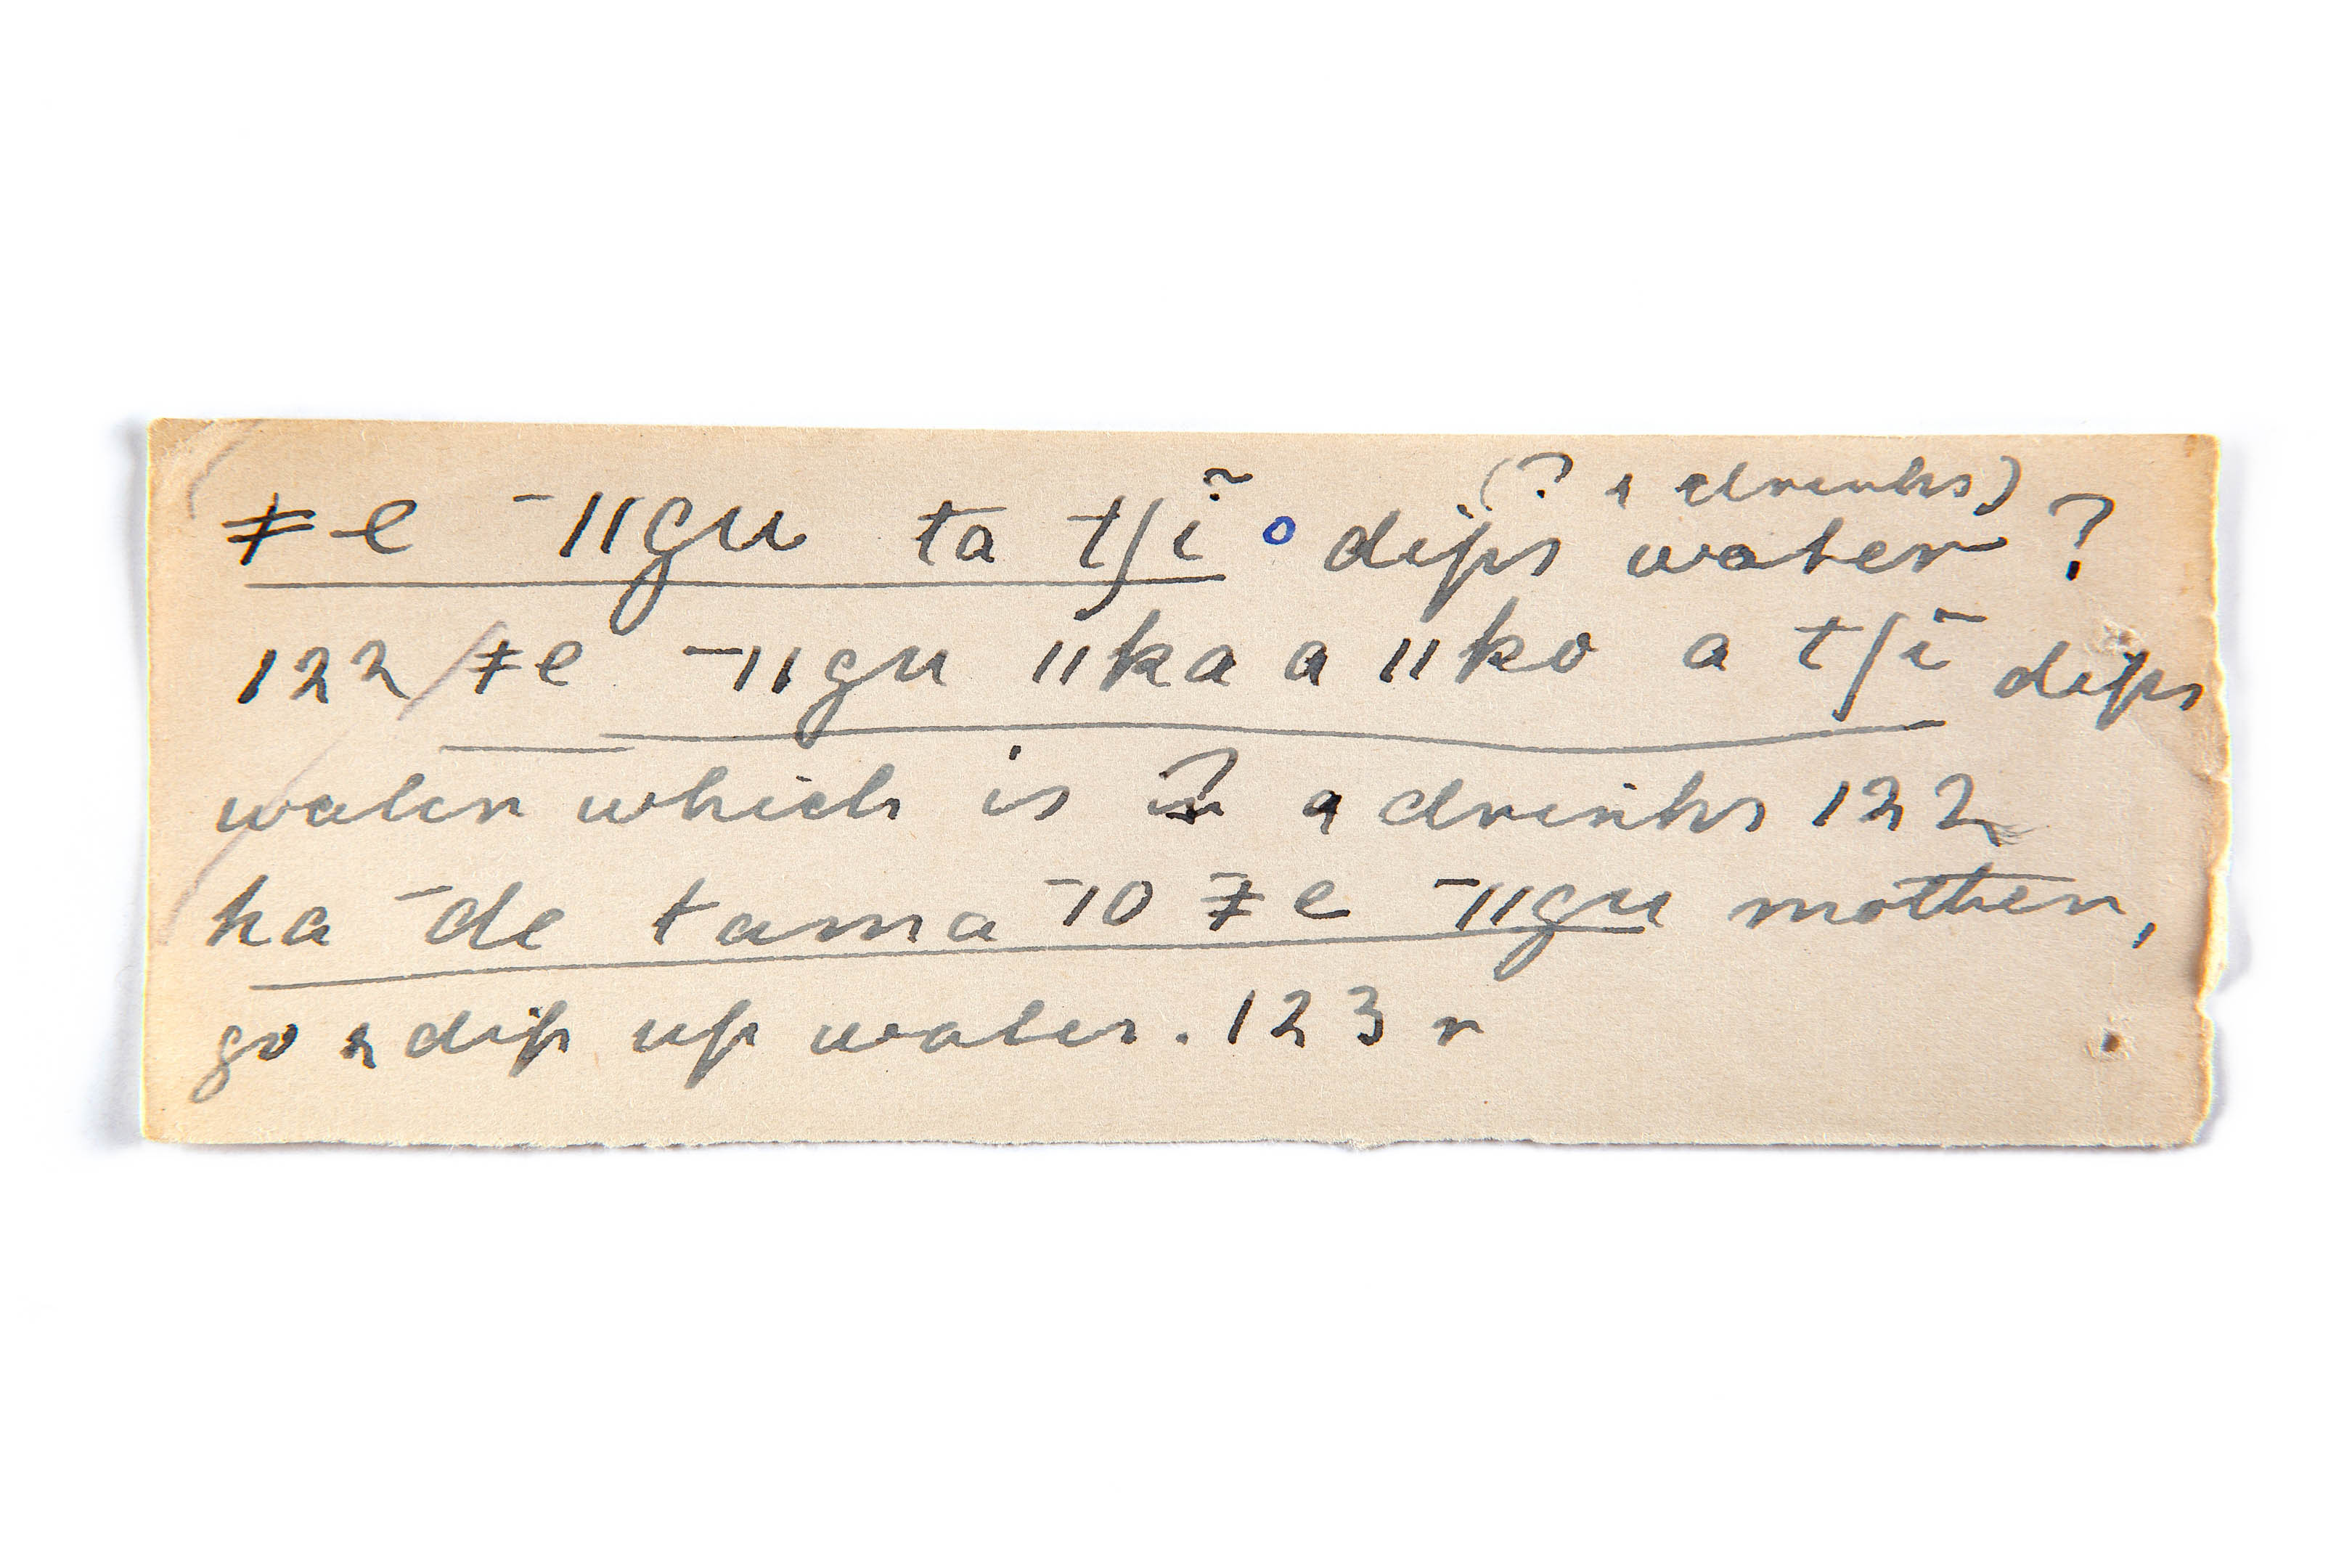 (? & drinks)
ǂe ¯ǁgu ta tʃĩ ° dips water ?
122 / ǂe ¯ǁgu ǁka a ǁko a tʃĩ dips
water which is ? & drinks 122
ha ¯de tama ¯ǀo ǂe ¯ǁgu mother,
go & dip up water. 123 r